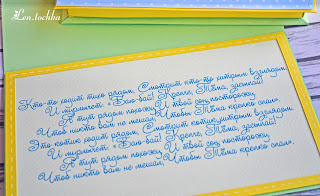 Len.tochka
Кто-то ходит тихо рядом, Смотрит кто-то хитрым взглядом.
И мурлычет: «Баю-бай! Крепче, Тёма, засыпай!
А я тут похожу, И твой сон посторожу,
Чтоб никто вам не мешал, Чтобы Тёма крепко спал».
Это котик ходит рядом, Смотрит котик хитрым взглядом.
И мурлычет: «Баю-бай! Крепче, Тёма, засыпай!
А я тут похожу, И твой сон посторожу,
Чтоб никто вам не мешал, Чтобы Тёма крепко спал».